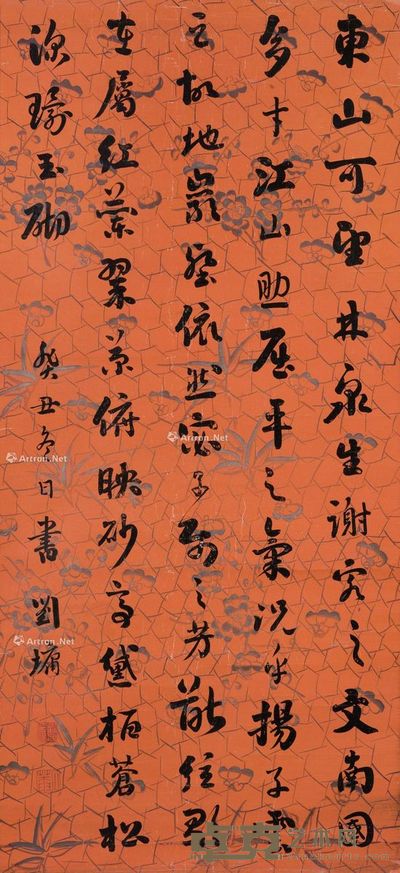 東山可望林泉生謝客之文南國
多才江山助屈平之氣況乎揚子雲
之故地巖壑依然宓子賤之芳猷弦歌
在屬紅蘭翠菊俯映砂亭黛柏蒼松
深環玉砌
癸丑冬日書劉墉
Artron.Net
Artron.Net
Artron.Net
Artron.Net